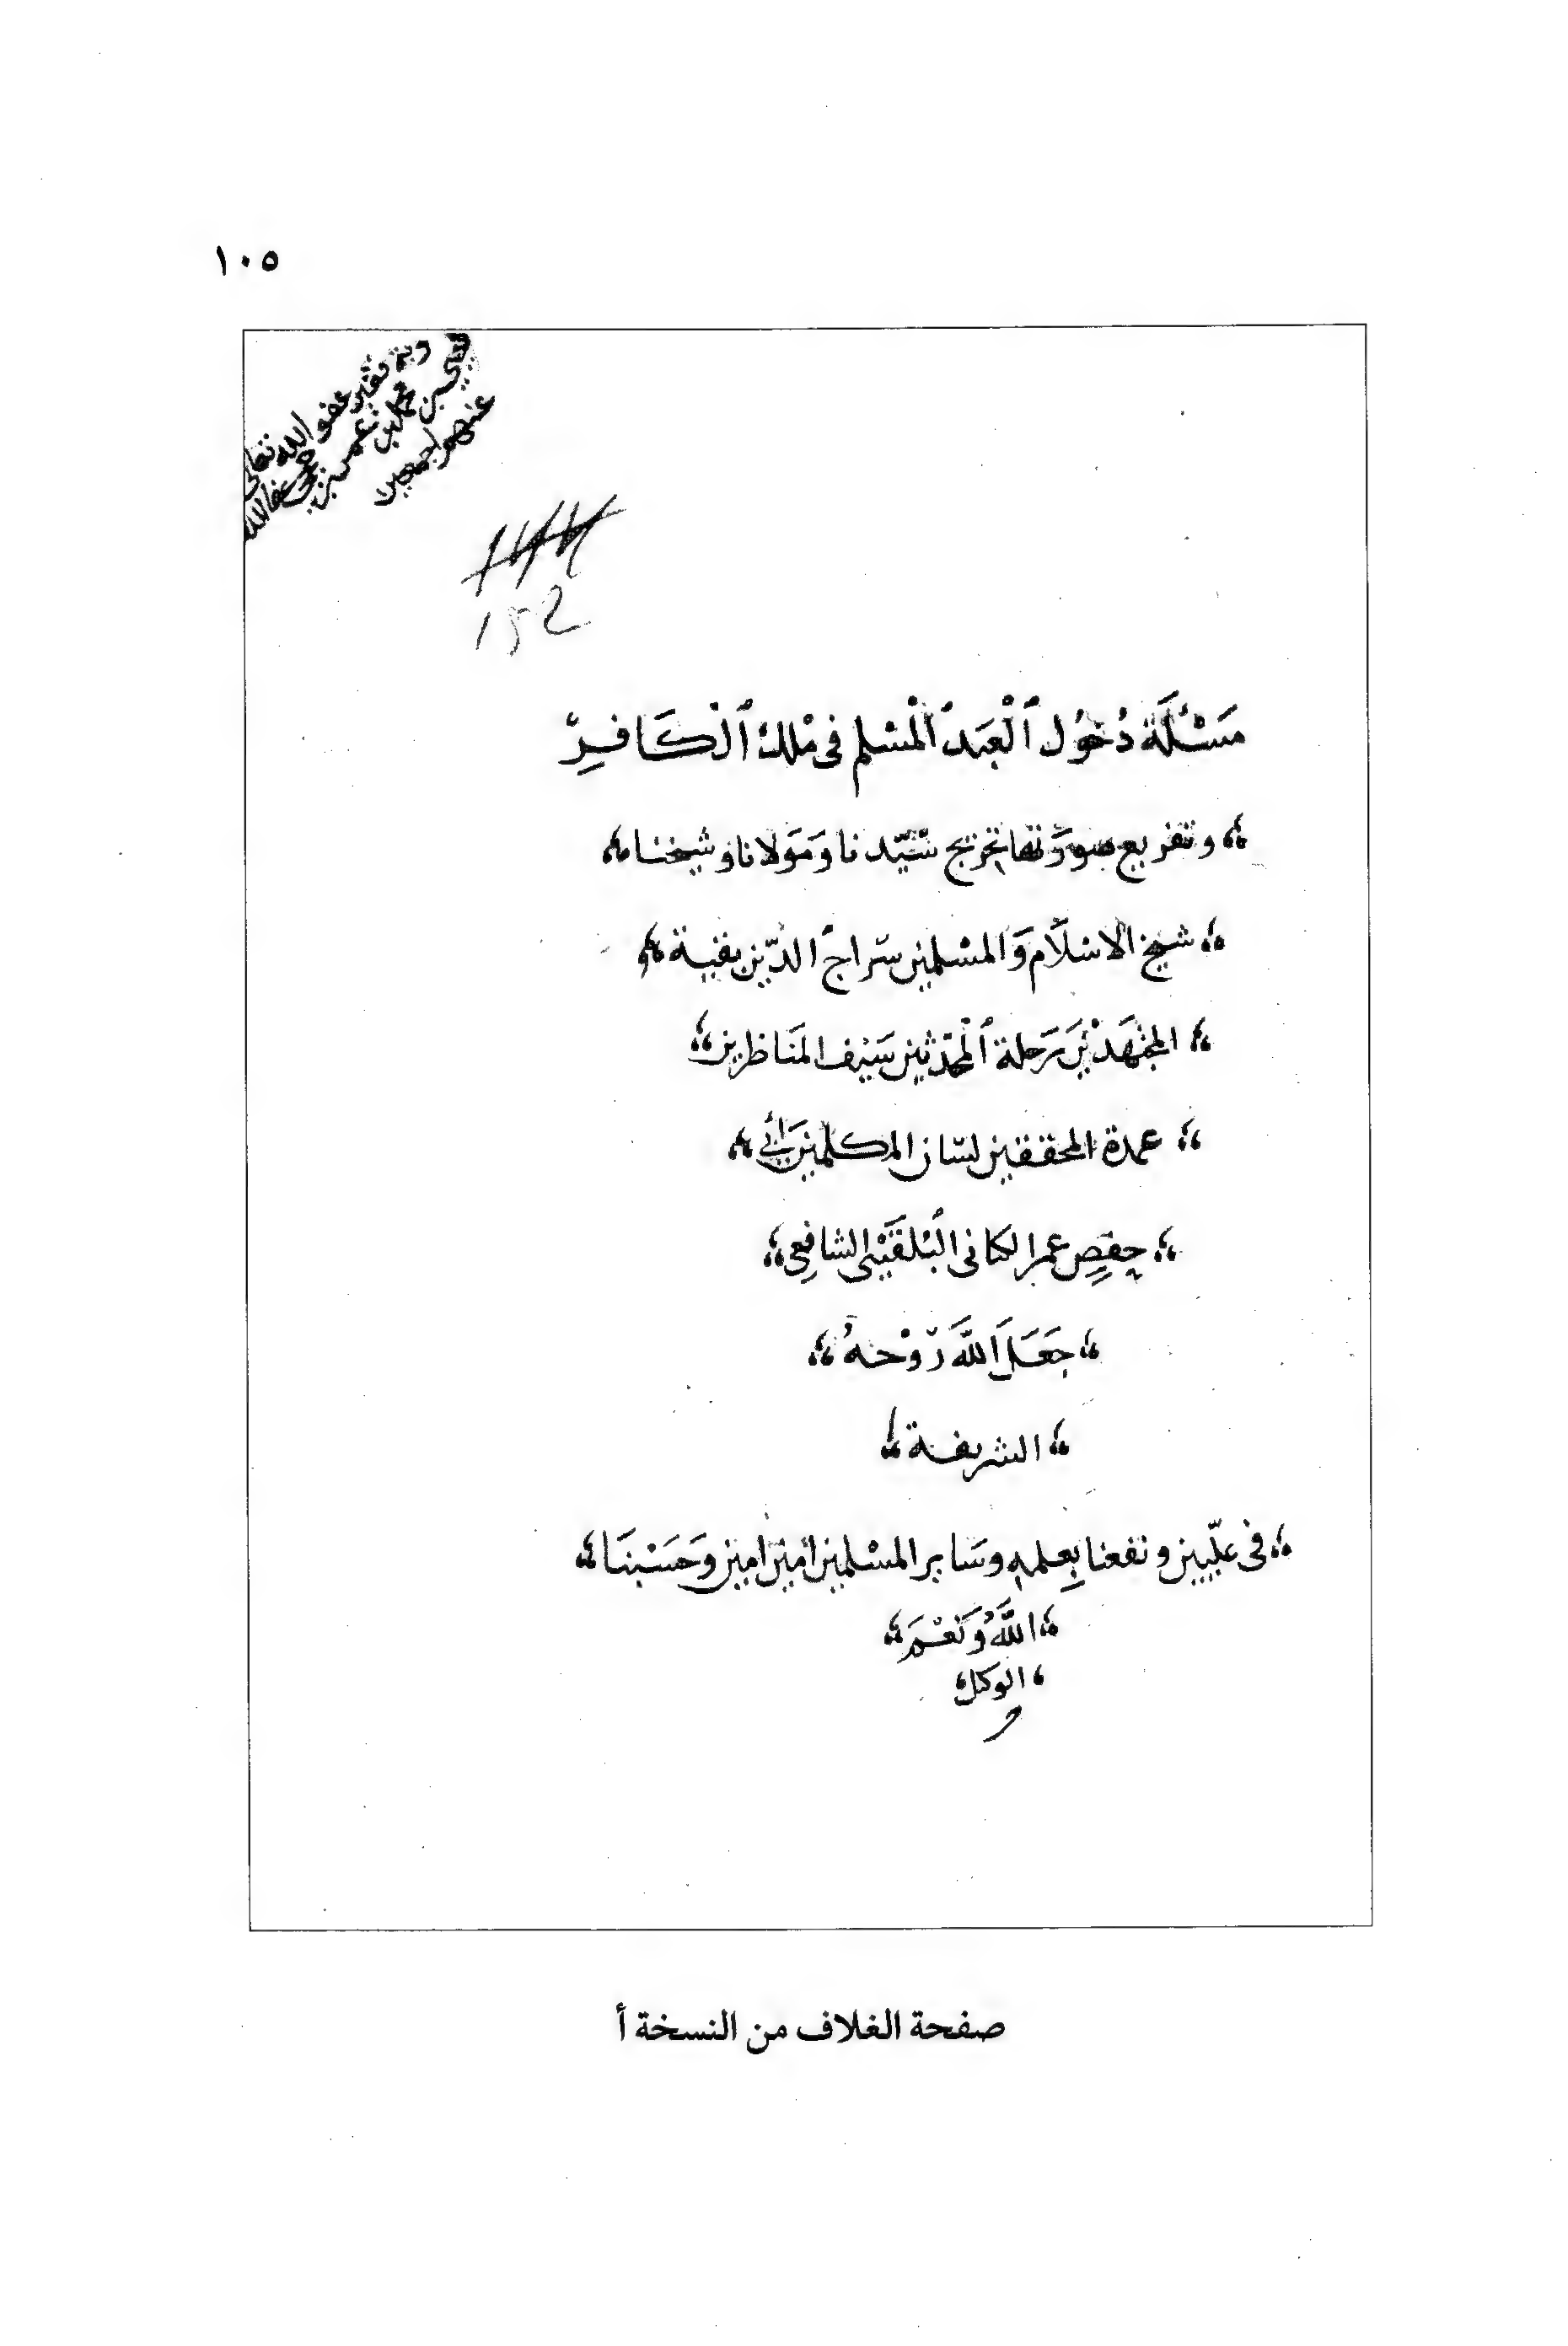 ١٠٥
عفو الله تعالى
محمد بن عمر بن
عنهم اجمعين
152
مَسْئَلَة دُخُول ٱلْعَبد ٱلْمسْلم فى مْلك ٱلْكَافِر
وتفريع صورَتها تخريج سَيّدنا وَمَولانا وشيخنا
شيخ الاسْلَام وَالمسْلمين سراج الدّين بقية
المجتهدْين رَحلة ٱلْمحدثين سَيْف المنَاظرين
عمدة المحققين لسَان المتكلمين أَبي
حِفصٍ عمر الكنانى البُلْقَيْنى الشافعِى
جَعَل اَللَّه رَوْحهُ
الشريفة
فى علّيين ونفعنا بِعلمه وسَاير المسْلمين امين امين وحَسْبنَا
اللَّهُ وَنعْمَ
الوكيل
صفحة الغلاف من النسخة أ